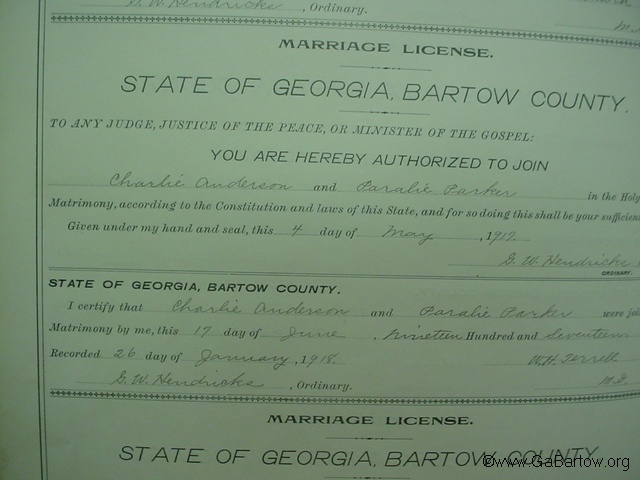 G. W. Hendricks, Ordinary.
MARRIAGE LICENSE.
STATE OF GEORGIA, BARTOW COUNTY.
TO ANY JUDGE, JUSTICE OF THE PEACE, OR MINISTER OF THE GOSPEL:
YOU ARE HEREBY AUTHORIZED TO JOIN
Charlie Anderson and Paralie Parker in the Holy
Matrimony, according to the Constitution and laws of this State, and for so doing this shall be your sufficien
Given under my hand and seal, this 4 day of May, 1917.
G. W. Hendricks
ORDINARY.
STATE OF GEORGIA, BARTOW COUNTY.
I certify that Charlie Anderson and Paralie Parker were joi
Matrimony by me, this 17 day of June, Nineteen Hundred and Seventeen
Recorded 26 day of January, 1918. W. H. Terrell
G. W. Hendricks, Ordinary. M. G.
MARRIAGE LICENSE.
STATE OF GEORGIA, BARTOW COUNTY
©www.GaBartow.org